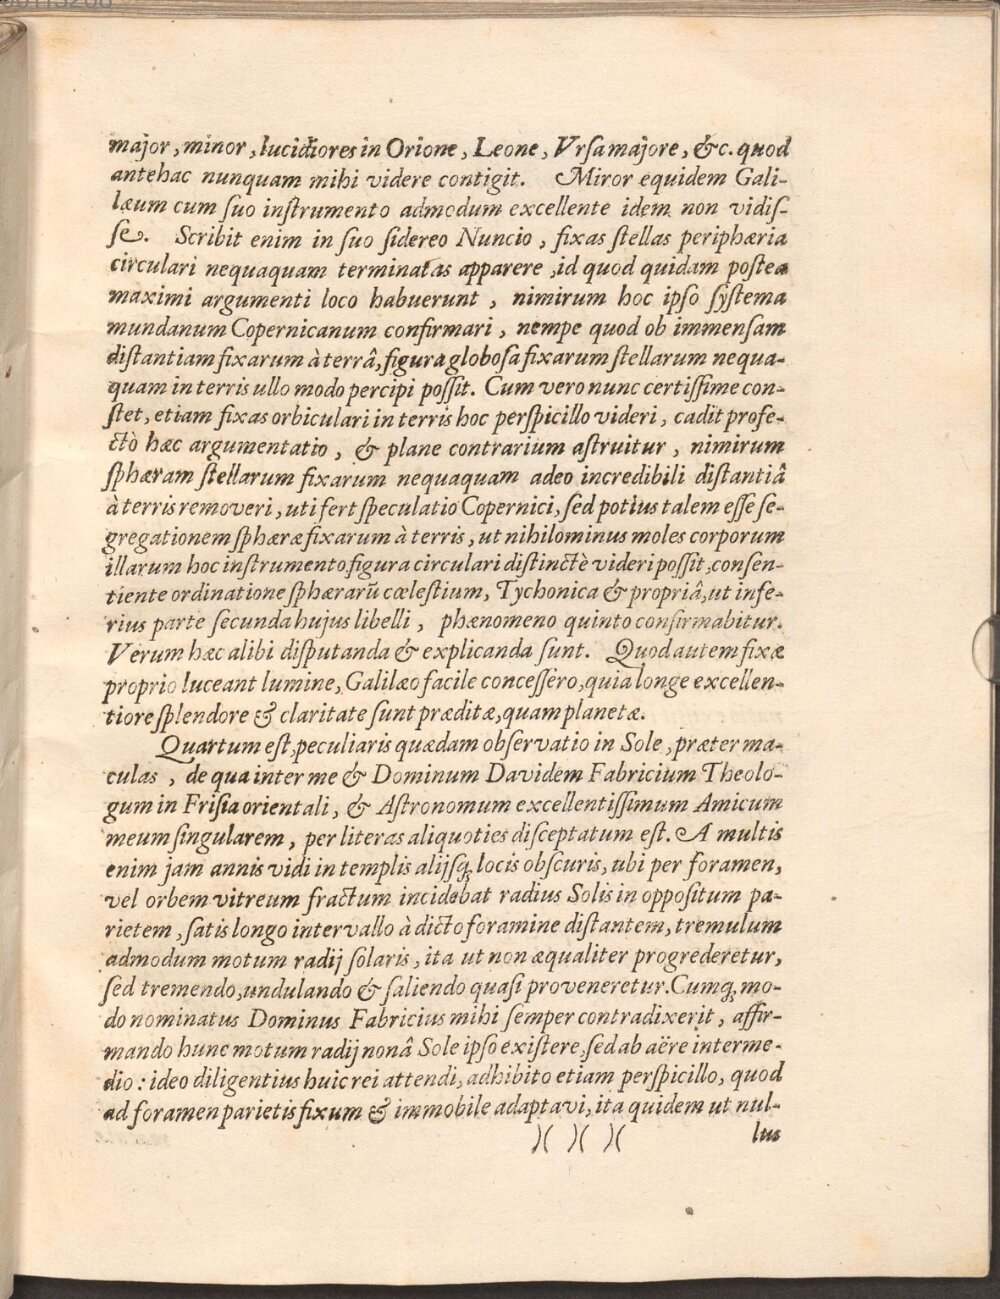 major, minor, lucidiores in Orione, Leone, Vrſa majore, &c. quod
antehac nunquam mihi videre contigit. Miror equidem Gali-
læum cum ſuo inſtrumento admodum excellente idem non vidiſ-
ſe. Scribit enim in ſuo ſidereo Nuncio, fixas ſtellas periphæria
circulari nequaquam terminatas apparere, id quod quidam poſtea
maximi argumenti loco habuerunt, nimirum hoc ipſo ſyſtema
mundanum Copernicanum confirmari, nempe quod ob immenſam
diſtantiam fixarum à terrâ, figura globoſa fixarum ſtellarum nequa-
quam in terris ullo modo percipi poſſit. Cum vero nunc certiſſime con-
ſtet, etiam fixas orbiculari in terris hoc perſpicillo videri, cadit profe-
ctò hæc argumentatio, & plane contrarium aſtruitur, nimirum
ſphæram ſtellarum fixarum nequaquam adeo incredibili diſtantiâ
à terris removeri, uti fert ſpeculatio Copernici, ſed potius talem eſſe ſe-
gregationem ſphæræ fixarum à terris, ut nihilominus moles corporum
illarum hoc inſtrumento figura circulari diſtinctè videri poſſit, conſen-
tiente ordinatione ſphærarũ cœleſtium, Tychonica & propriâ, ut infe-
rius parte ſecunda hujus libelli, phænomeno quinto confirmabitur.
Verum hæc alibi diſputanda & explicanda ſunt. Quod autem fixæ
proprio luceant lumine, Galilæo facile conceſſero, quia longe excellen-
tiore ſplendore & claritate ſunt præditæ, quam planetæ.
Quartum eſt, peculiaris quædam obſervatio in Sole, præter ma-
culas, de qua inter me & Dominum Davidem Fabricium Theolo-
gum in Friſia orientali, & Aſtronomum excellentiſſimum Amicum
meum ſingularem, per literas aliquoties diſceptatum eſt. A multis
enim jam annis vidi in templis alijſq; locis obſcuris, ubi per foramen,
vel orbem vitreum fractum incidebat radius Solis in oppoſitum pa-
rietem, ſatis longo intervallo à dicto foramine diſtantem, tremulum
admodum motum radij ſolaris, ita ut non æqualiter progrederetur,
ſed tremendo, undulando & ſaliendo quaſi proveneretur. Cumq; mo-
do nominatus Dominus Fabricius mihi ſemper contradixerit, affir-
mando hunc motum radij non â Sole ipſo exiſtere, ſed ab aëre interme-
dio: ideo diligentius huic rei attendi, adhibito etiam perſpicillo, quod
ad foramen parietis fixum & immobile adaptavi, ita quidem ut nul-
)( )( )( lus